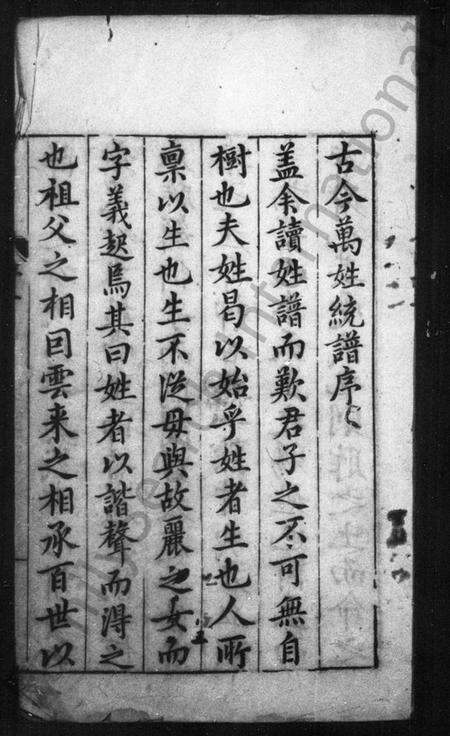 古今萬姓統譜序
盖余讀姓譜而歎君子之不可無自
樹也夫姓曷以始乎姓者生也人所
禀以生也生不从母與故麗之女而
字義起焉其曰姓者以諧聲而得之
也祖父之相因雲来之相承百世以